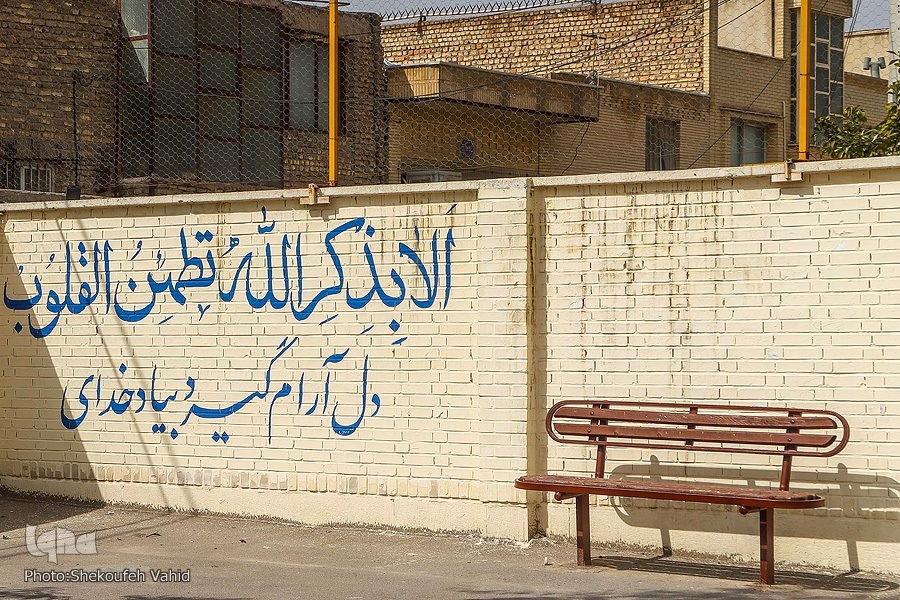 اَلا بِذِکرِ اللّٰهِ تَطمَئِنُ القُلوُبُ
دل آرام گیرد بیاد خدای
iqna
Photo:Shekoufeh Vahid